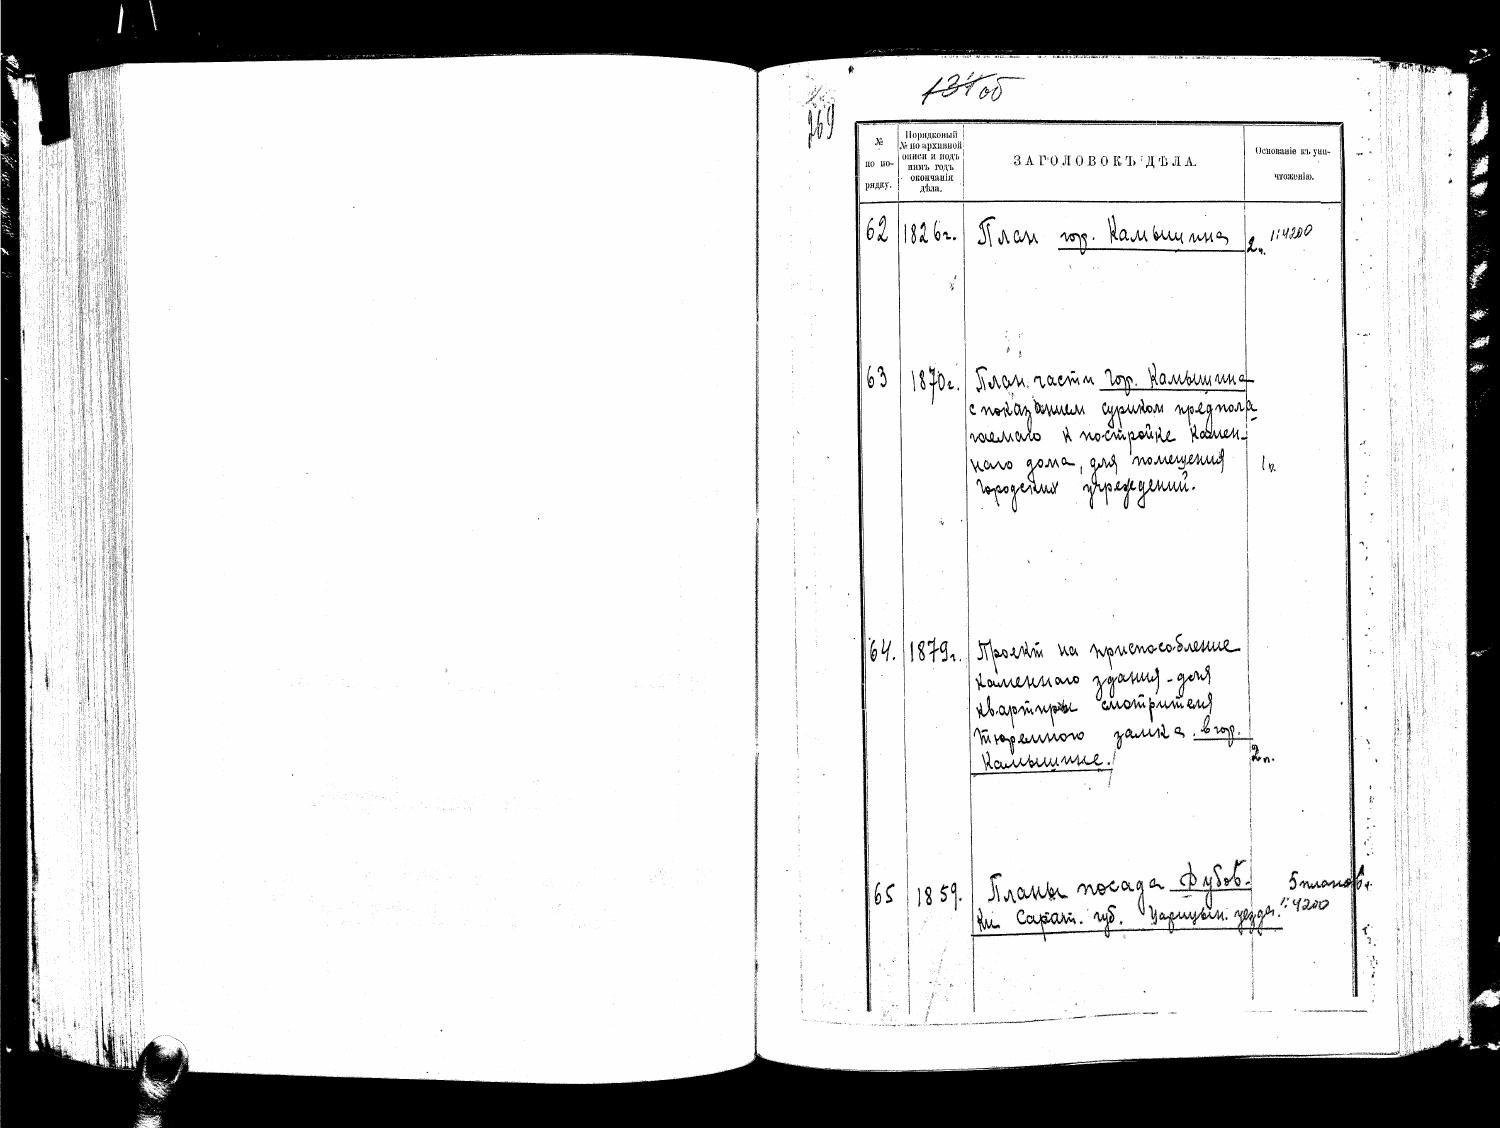 134 об
269
№
по по-
рядку.
Порядковый
№ по архивной
описи и подъ
нимъ годъ
окончанія
дѣла.
ЗАГОЛОВОКЪ ДѢЛА.
Основаніе къ уни-
чтоженію.
62 1826г. План гор. Камышина 2л. 1:4200
63 1870г. План части гор. Камышина
с показанием суриком предпола
гаемаго к постройке камен-
наго дома, для помещения 1л.
городских учреждений.
64. 1879г. Проект на приспособление
каменнаго здания - для
квартиры смотрителя
тюремного замка в гор.
Камышине. 2л.
65 1859. Планы посада Дубов- 5 планов
ки Сарат. губ. Царицын. уезда. 1:4200